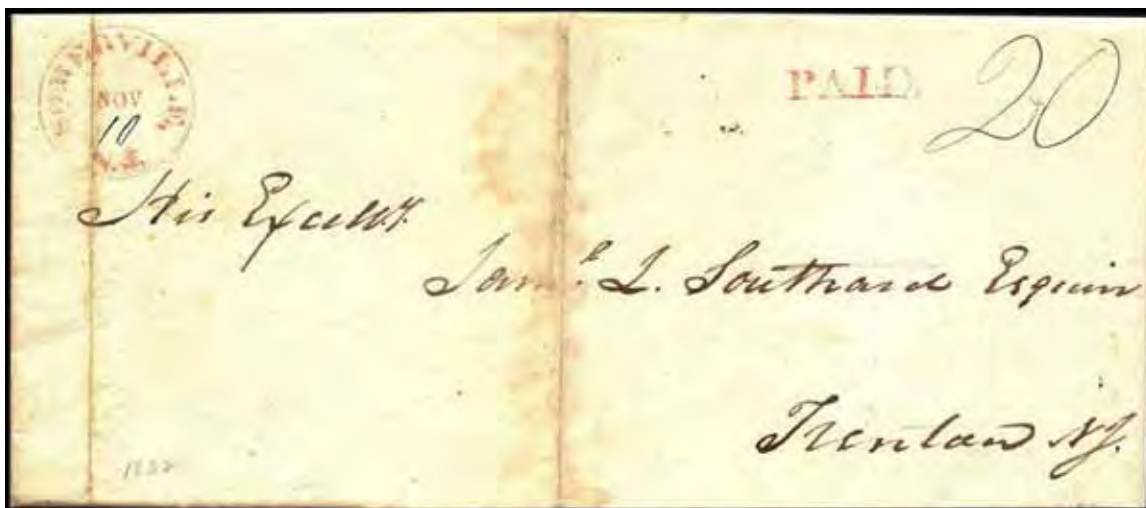 SOMERVILLE
NOV
10
N.J.
PAID
20
His Excell.y
Sam.l L. Southard Esquire
Trenton NJ.
1832